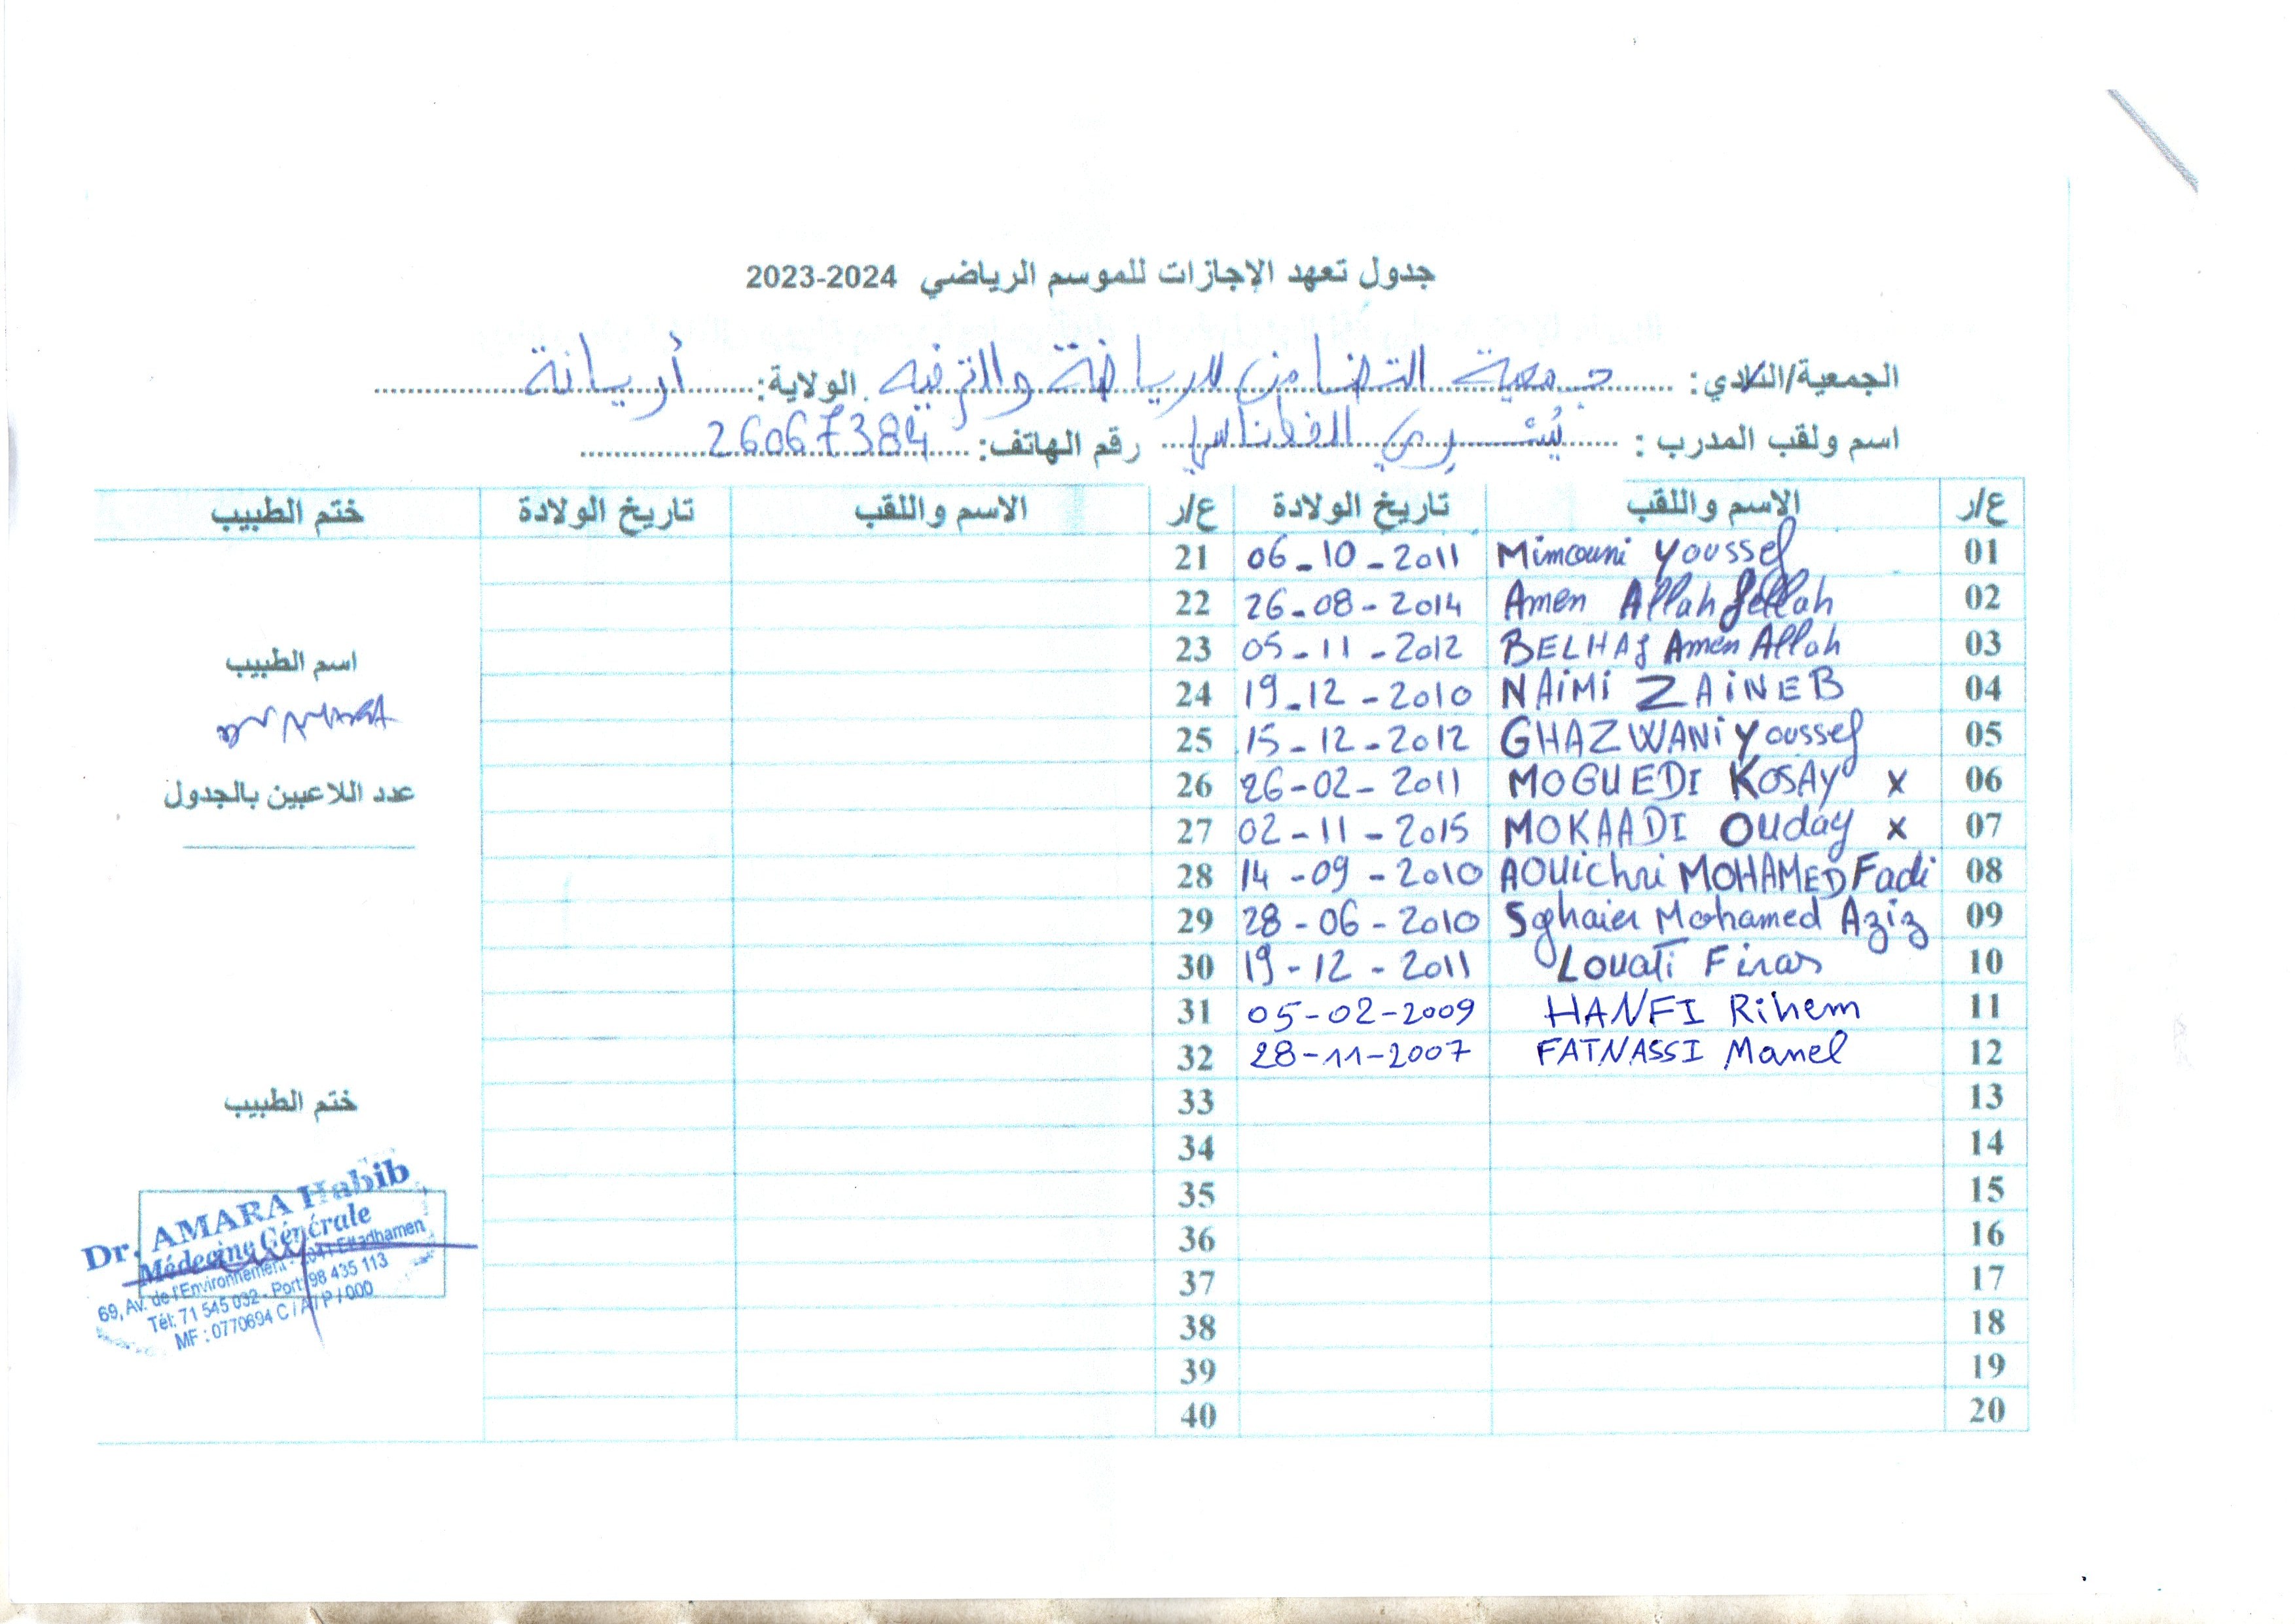 جدول تعهد الإجازات للموسم الرياضي 2023-2024
الجمعية/النادي: جمعية التضامن للرياضة والترفيه الولاية: أريانة
اسم ولقب المدرب : يُسْري الفطناسي رقم الهاتف: 26067384
ع/ر الاسم واللقب تاريخ الولادة ع/ر الاسم واللقب تاريخ الولادة ختم الطبيب
01 Mimouni Youssef 06-10-2011 21
02 Amen Allah fellah 26-08-2014 22
03 BELHAJ Amen Allah 05-11-2012 23
04 NAiMi ZAiNEB 19-12-2010 24
05 GHAZWANi Youssef 15-12-2012 25
06 MOGUEDI KOSAY x 26-02-2011 26
07 MOKAADI Ouday x 02-11-2015 27
08 AOUichri MOHAMED Fadi 14-09-2010 28
09 Sghaier Mohamed Aziz 28-06-2010 29
10 Louati Firas 19-12-2011 30
11 HANFI Rihem 05-02-2009 31
12 FATNASSI Manel 28-11-2007 32
13 33
14 34
15 35
16 36
17 37
18 38
19 39
20 40
اسم الطبيب
عدد اللاعبين بالجدول
ختم الطبيب
Dr. AMARA Habib
Médecine Générale
69, Av. de l'Environnement - 2041 Ettadhamen
Tél: 71 545 032 - Port: 98 435 113
MF : 0770694 C / A / P / 000